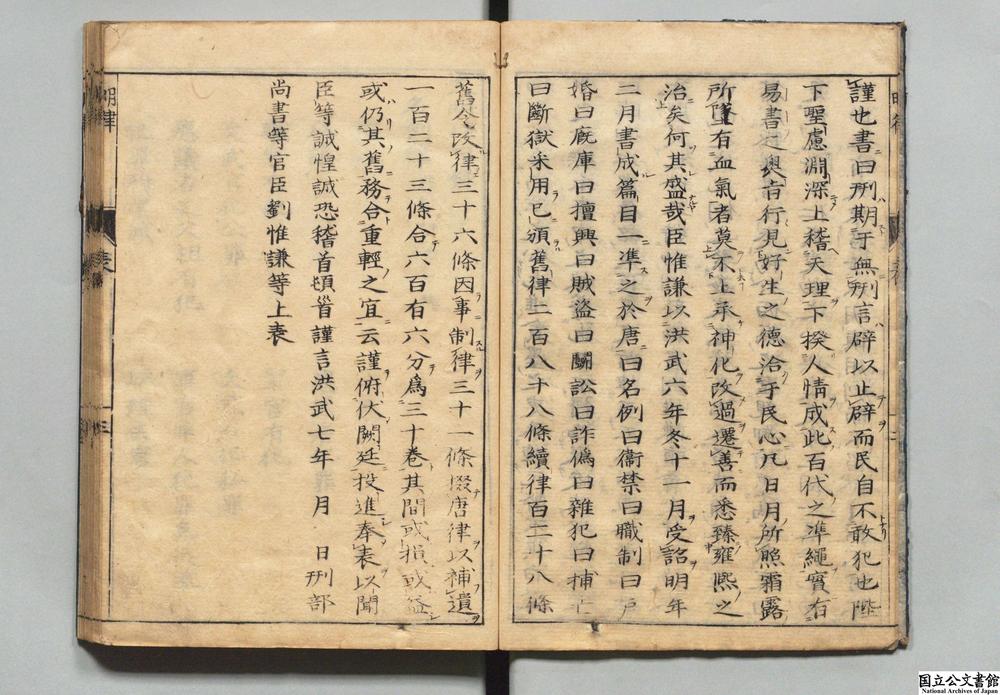 謹也書曰刑期于無刑言辟以止辟而民自不敢犯也陛
下聖慮淵深上稽天理下揆人情成此百代之準繩實有
易書之奧旨行見好生之德洽于民心凡日月所照霜露
所墜有血氣者莫不上承神化改過遷善而悉臻雍熙之
治矣何其盛哉臣惟謙以洪武六年冬十一月受詔明年
二月書成篇目一準之於唐曰名例曰衞禁曰職制曰戶
婚曰厩庫曰擅興曰賊盜曰鬬訟曰詐偽曰雜犯曰捕亡
曰斷獄采用已頒舊律二百八十八條續律百二十八條
舊令改律三十六條因事制律三十一條掇唐律以補遺
一百二十三條合六百有六分爲三十卷其間或損或益
或仍其舊務合重輕之宜云謹俯伏闕廷投進奉表以聞
臣等誠惶誠恐稽首頓首謹言洪武七年 月 日刑部
尚書等官臣劉惟謙等上表
明律
表
三
国立公文書館
National Archives of Japan